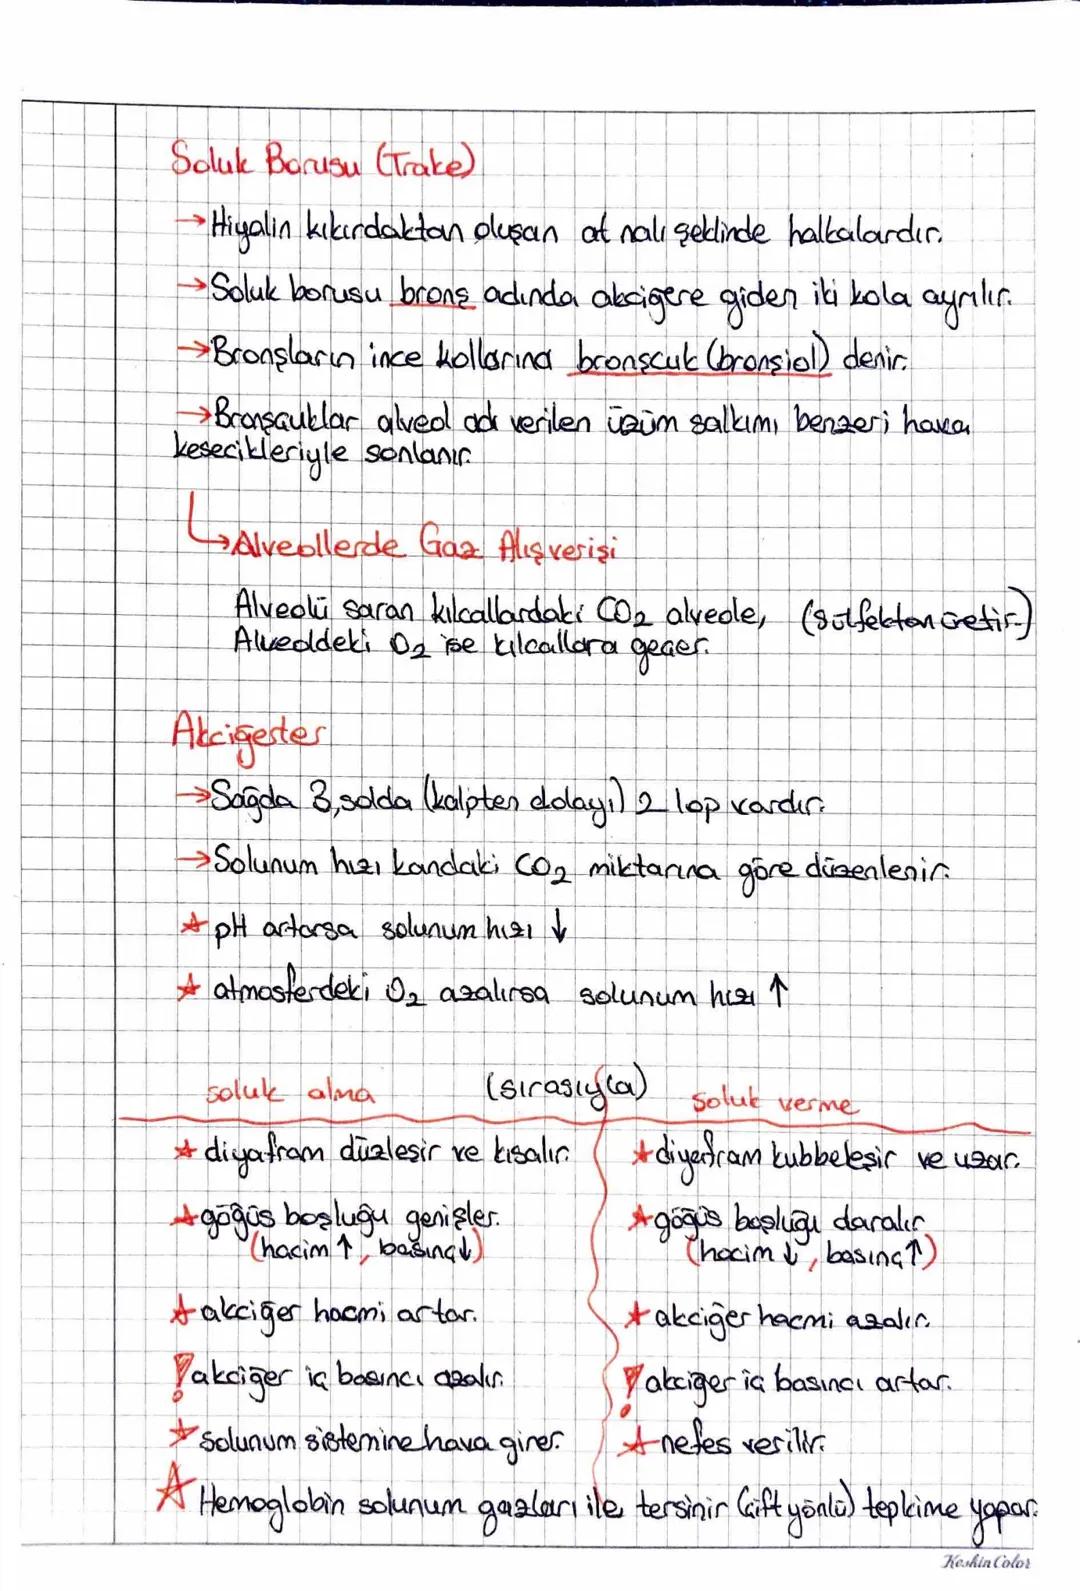 Soluk Borusu (Trake)
→Hiyalin kıkırdaktan oluşan at nalı şeklinde halkalardır.
→Soluk borusu bronş adında akciğere giden iki kola ayrılır.
→Bronşların ince kollarına bronşcuk (bronşiol) denir.
→Bronşçuklar alveol adı verilen üzüm salkımı benzeri hava
kesecikleriyle sonlanır.
↳Alveollerde Gaz Alışverişi
Alveolü saran kılcallardaki CO₂ alveole, (sülfektan üretir.)
Alveoldeki O₂ ise kılcallara geçer.
Akciğerler
→Sağda 3, solda (kalpten dolayı) 2 lop vardır.
→Solunum hızı kandaki CO₂ miktarına göre düzenlenir.
★ pH artarsa solunum hızı ↓
★ atmosferdeki O₂ azalırsa solunum hızı ↑
soluk alma (sırasıyla) soluk verme
★ diyafram düzleşir ve kısalır. ★ diyafram kubbeleşir ve uzar.
★ göğüs boşluğu genişler. ★ göğüs boşluğu daralır
(hacim ↑, basınç↓) (hacim ↓, basınç↑)
★ akciğer hacmi artar. ★ akciğer hacmi azalır.
! akciğer iç basıncı azalır. ! akciğer iç basıncı artar.
★ solunum sistemine hava girer. ★ nefes verilir.
★ Hemoglobin solunum gazları ile tersinir (çift yönlü) tepkime yapar.
Keskin Color